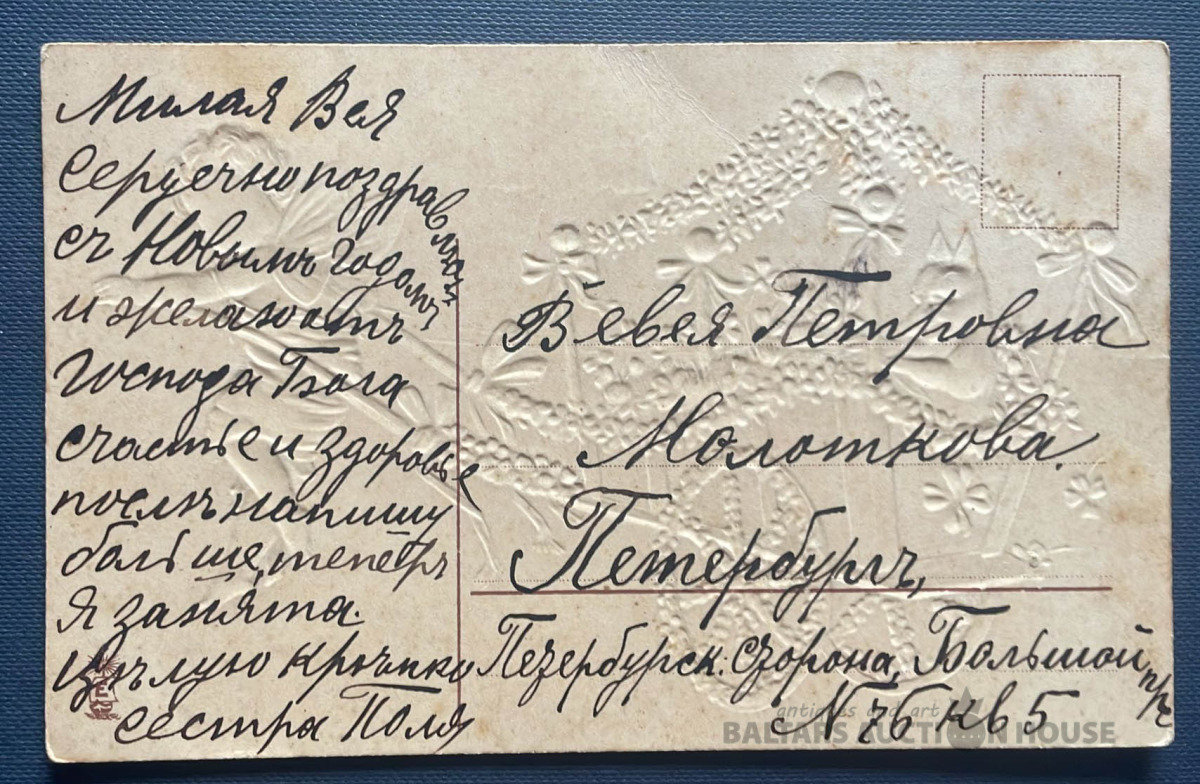 Милая Вея
Сердечно поздравляемъ
съ Новымъ Годомъ
и желаю отъ
Господа Бога
счастье и здоровье
послѣ напишу
больше, теперь
Я занята.
Цѣлую крѣпко
сестра Поля
Вевея Петровна
Молоткова.
Петербургъ,
Петербургск. Сторона, Большой пр.
N 76 кв 5
antiques and art
BALTARS AUCTION HOUSE